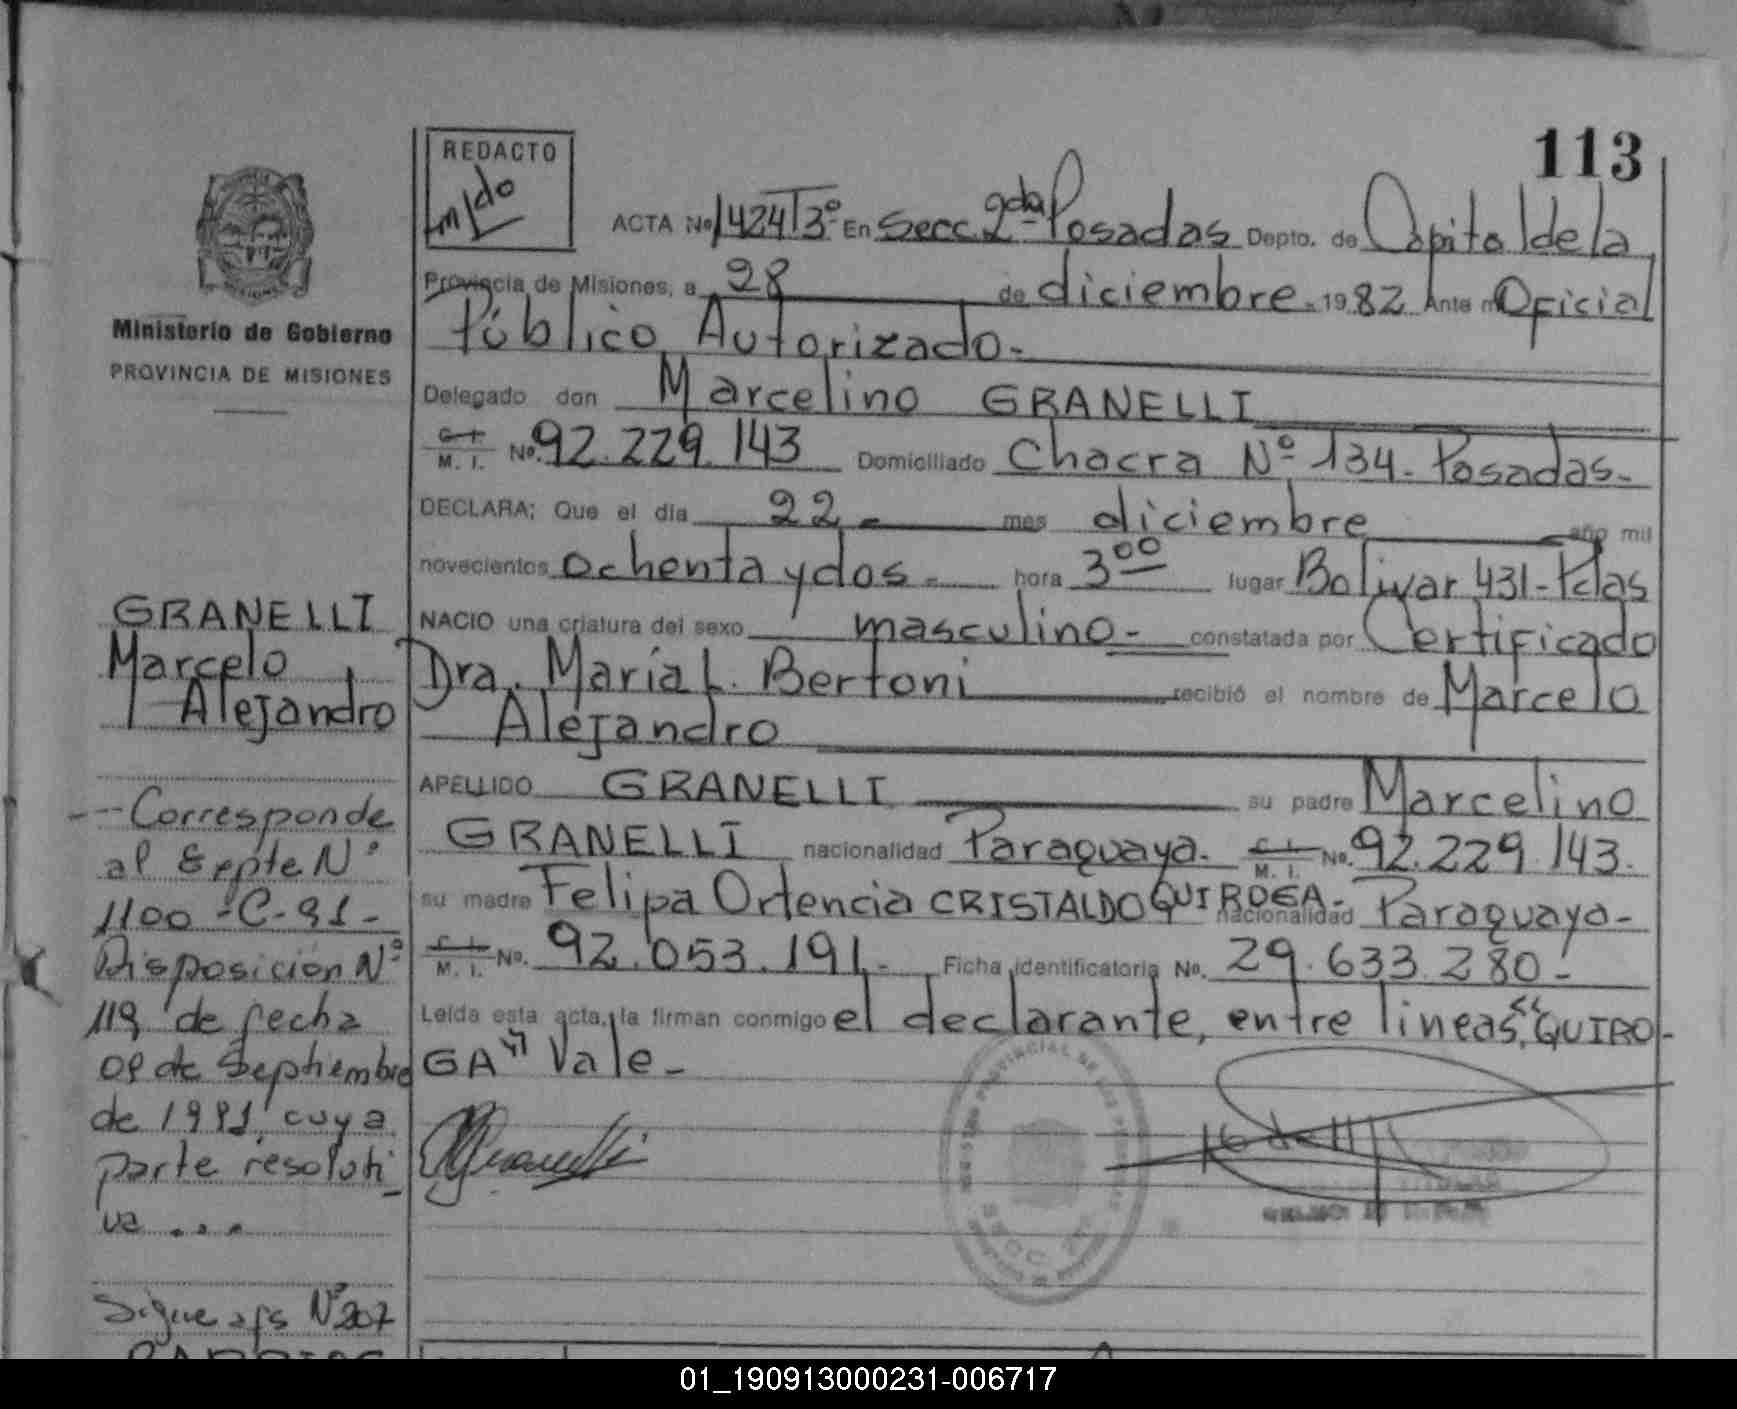 113
REDACTO
ACTA No 1424 T 3º En Secc. 2da Posadas Depto. de Capital de la
Provincia de Misiones, a 28 de diciembre 1982 Ante mi Oficial
Público Autorizado.-
Ministerio de Gobierno
PROVINCIA DE MISIONES
Delegado don Marcelino GRANELLI
C. I. M. I. No. 92.229.143 Domiciliado Chacra Nº 134- Posadas-
DECLARA: Que el día 22- mes diciembre año mil
novecientos ochenta y dos- hora 3 00 lugar Bolivar 431- Pdas
NACIO una criatura del sexo masculino- constatada por Certificado
Dra. María L. Bertoni recibió el nombre de Marcelo
Alejandro
APELLIDO GRANELLI su padre Marcelino
GRANELLI nacionalidad Paraguaya. C. I. M. I. No. 92.229.143.
su madre Felipa Ortencia CRISTALDO QUIROGA- nacionalidad Paraguaya-
C. I. M. I. No. 92.053.191- Ficha identificatoria No. 29.633.280-
Leída esta acta, la firman conmigo el declarante, entre lineas "QUIRO-
GA" Vale-
GRANELLI
Marcelo
Alejandro
-- Corresponde
al Expte Nº
1100-C-91-
Disposición Nº
119 de fecha
09 de Septiembre
de 1991, cuya
parte resoluti_
va ...
Sigue a fs Nº 207
01_190913000231-006717